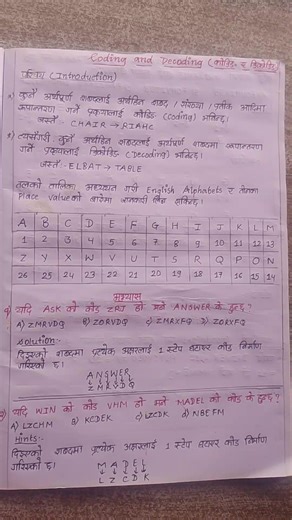 Coding and Decoding (कोडिङ र डिकोडिङ)
परिचय (Introduction)
*) कुनै अर्थपूर्ण शब्दलाई अर्थहीन शब्द / संख्या / प्रतीक आदिमा
रूपान्तरण गर्ने प्रकृयालाई कोडिङ (Coding) भनिन्छ।
जस्तै:- CHAIR → RIAHC
*) त्यसैगरी कुनै अर्थहीन शब्दलाई अर्थपूर्ण शब्दमा रूपान्तरण
गर्ने प्रकृयालाई डिकोडिङ (Decoding) भनिन्छ।
जस्तै:- ELBAT → TABLE
तलको तालिका अध्ययन गरी English Alphabets र तिनका
Place value को बारेमा जानकारी लिन सकिन्छ।
A B C D E F G H I J K L M
1 2 3 4 5 6 7 8 9 10 11 12 13
Z Y X W V U T S R Q P O N
26 25 24 23 22 21 20 19 18 17 16 15 14
अभ्यास
यदि ASK को कोड ZRJ हो भने ANSWER के हुन्छ?
A) ZMRVDQ B) ZORVDQ c) ZMRXFQ D) ZORXFQ
Solution:-
दिइएको शब्दमा प्रत्येक अक्षरलाई 1 स्टेप घटाएर कोड निर्माण
गरिएको छ।
A N S W E R
↓ ↓ ↓ ↓ ↓ ↓
Z M R V D Q
यदि WIN को कोड VHM हो भने MADEL को कोड के हुन्छ?
A) LZCHM B) KCDEK c) LZCDK d) NBEFM
Hints:-
दिइएको शब्दमा प्रत्येक अक्षरलाई 1 स्टेप घटाएर कोड निर्माण
गरिएको छ।
M A D E L
↓ ↓ ↓ ↓ ↓
L Z C D K